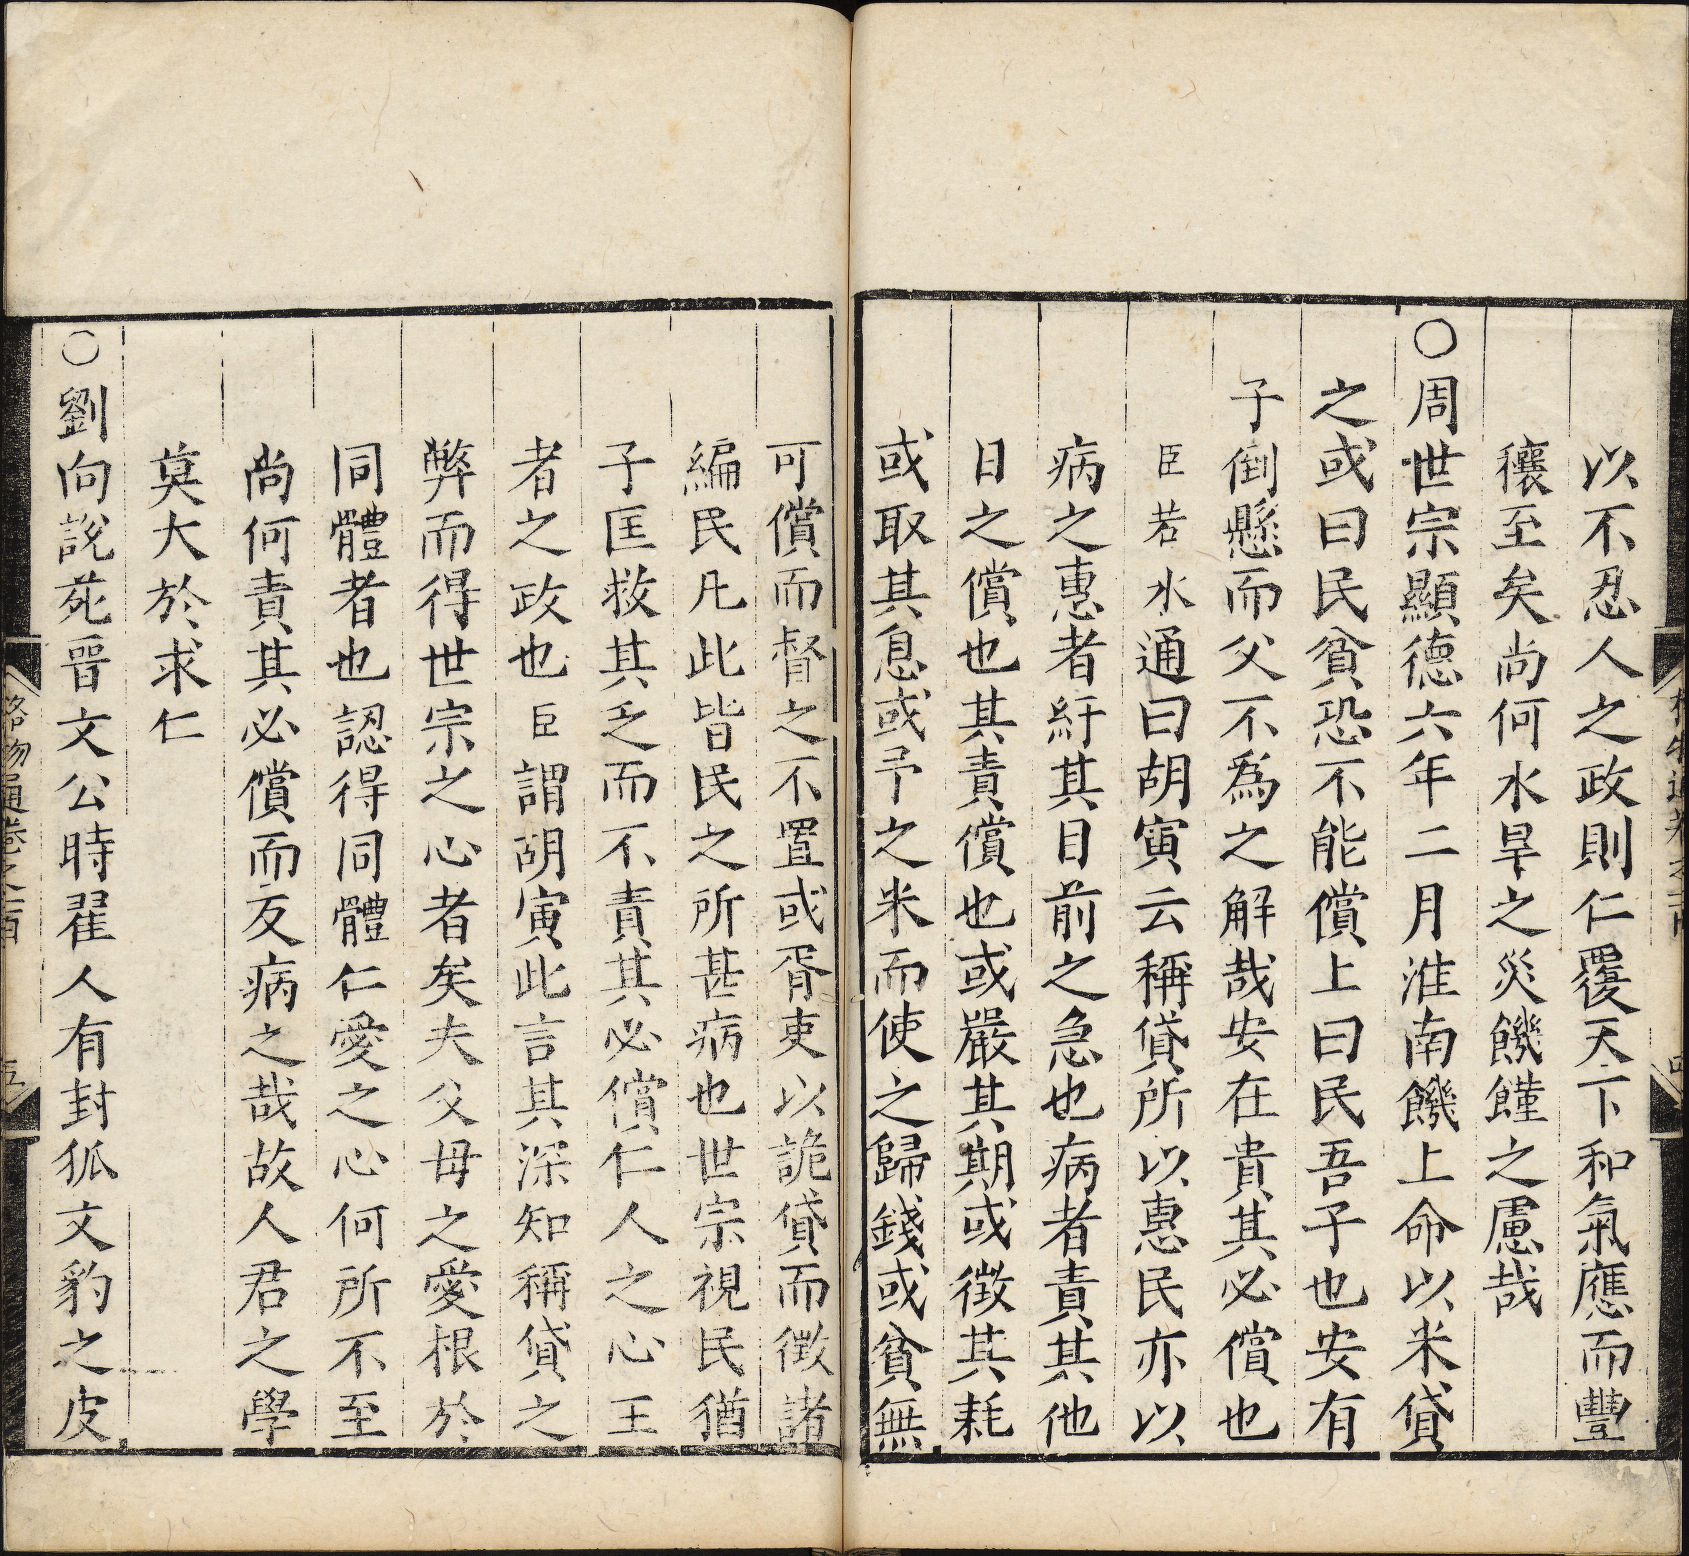 以不忍人之政則仁覆天下和氣應而豐
穰至矣尚何水旱之災饑饉之慮哉
○周世宗顯德六年二月淮南饑上命以米貸
之或曰民貧恐不能償上曰民吾子也安有
子倒懸而父不為之解哉安在責其必償也
臣若水通曰胡寅云稱貸所以惠民亦以
病之惠者紓其目前之急也病者責其他
日之償也其責償也或嚴其期或徵其耗
或取其息或予之米而使之歸錢或貧無
可償而督之不置或胥吏以詭貸而徵諸
編民凡此皆民之所甚病也世宗視民猶
子匡救其乏而不責其必償仁人之心王
者之政也臣謂胡寅此言其深知稱貸之
弊而得世宗之心者矣夫父母之愛根於
同體者也認得同體仁愛之心何所不至
尚何責其必償而反病之哉故人君之學
莫大於求仁
○劉向說苑晉文公時翟人有封狐文豹之皮
格物通卷之
五